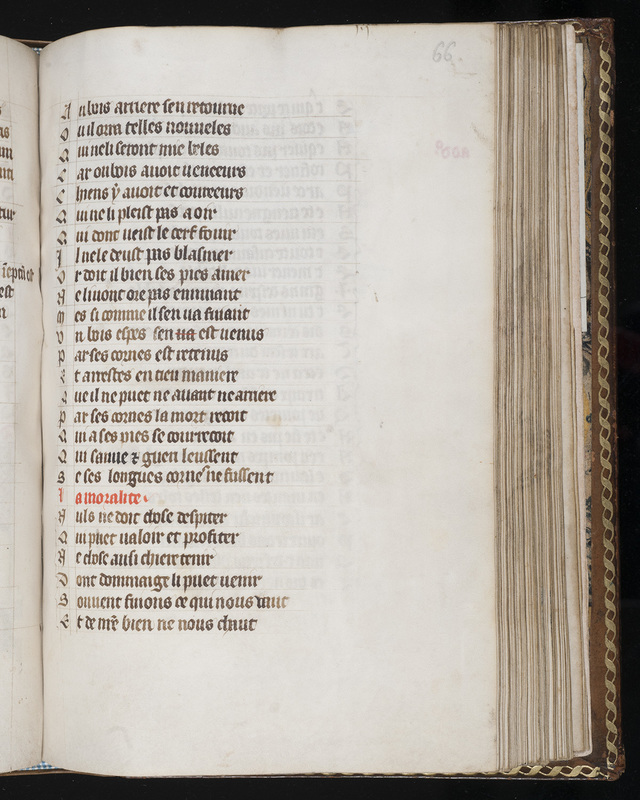 66.
A u bois arriere sen retourne
O u il orra telles nouueles
Q ui ne li seront mie beles
C ar ou bois auoit veneeurs
C hiens y auoit et coureeurs
Q ui ne li pleist pas a oir
Q ui dont veist le cerf fouir
I l ne le deust pas blasmer
O r doit il bien ses pies amer
N e li vont ore pas ennuiant
M es si comme il sen va fuiant
U n bois espes sen va est venus
P ar ses cornes est retenus
E t arrestes en tieu maniere
Q ue il ne puet ne auant ne arriere
P ar ses cornes la mort recoit
Q ui a ses pies se courrecoit
Q ui sauue & guen leussent
S e ses longues cornes ne fussent
L a moralite
N uls ne doit chose despiter
Q ui puet ualoir et profiter
N e chose ausi chiere tenir
D ont dommaige li puet uenir
S ouuent fuions ce qui nous vaut
E t de nre bien ne nous chaut